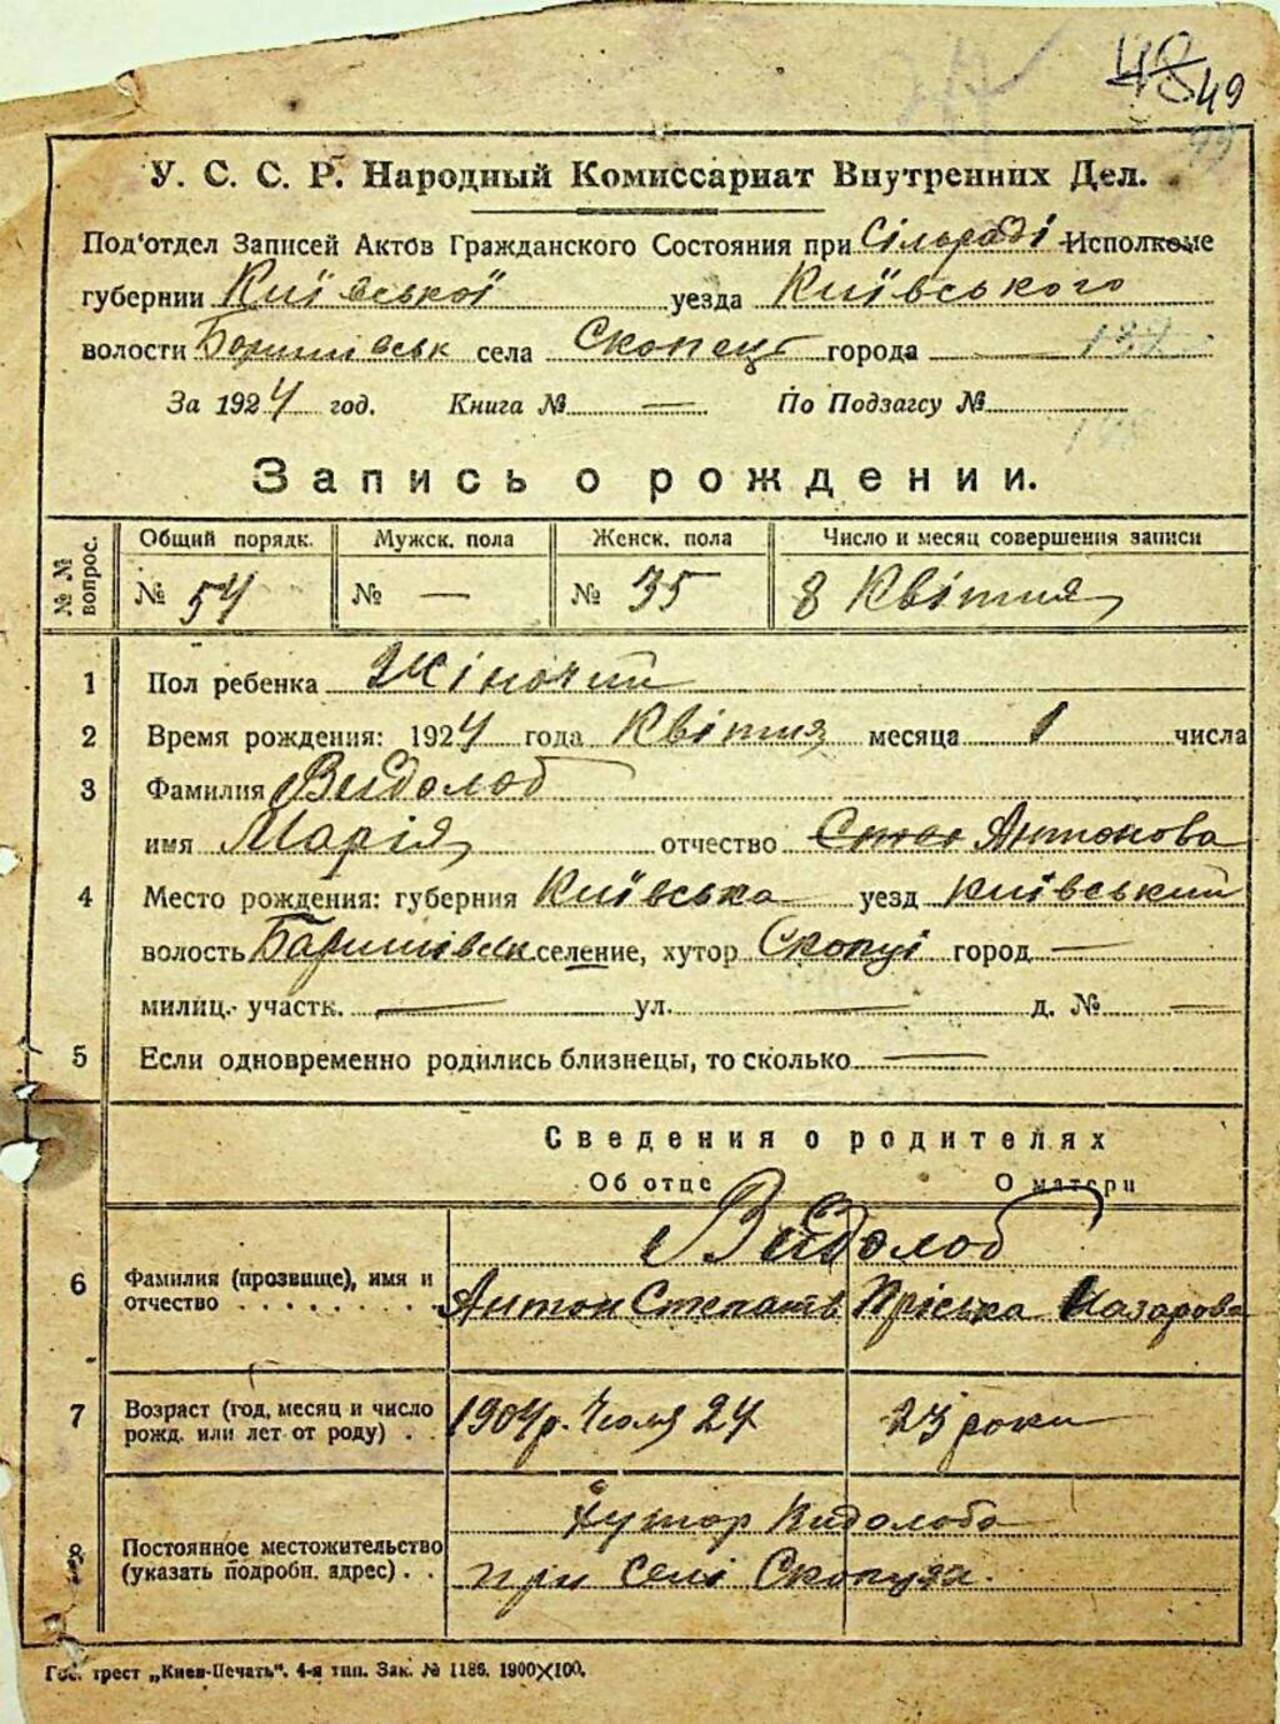 48 49
У. С. С. Р. Народный Комиссариат Внутренних Дел.
Под'отдел Записей Актов Гражданского Состояния при Сільраді Исполкоме
губернии Київської уезда Київського
волости Боришівськ села Скопець города —
За 1924 год. Книга № — По Подзагсу №
Запись о рождении.
№№ вопрос. Общий порядк. Мужск. пола Женск. пола Число и месяц совершения записи
№ 54 № — № 35 8 Квітня
1 Пол ребенка Жіночий
2 Время рождения: 1924 года Квітня месяца 1 числа
3 Фамилия Видолоб
имя Марія отчество Антонова
4 Место рождения: губерния Київська уезд Київський
волость Баришівськ селение, хутор Скопці город —
милиц. участк. — ул. — д. № —
5 Если одновременно родились близнецы, то сколько —
Сведения о родителях
Об отце О матери
Видолоб
6 Фамилия (прозвище), имя и
отчество Антон Степанів Пріська Назарова
7 Возраст (год, месяц и число
рожд. или лет от роду) 1904 р. 24 23 роки
Хутор Видолоба
8 Постоянное местожительство
(указать подробн. адрес) при селі Скопцях.
Гос. трест „Киев-Печать". 4-я тип. Зак. № 1186. 1900×100.